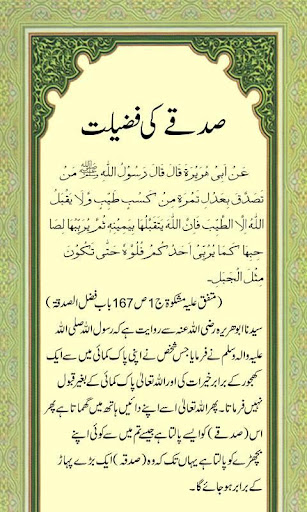 صدقے کی فضیلت
عَنْ اَبِیْ هُرَیْرَةَ قَالَ قَالَ رَسُوْلُ اللّٰهِ ﷺ مَنْ
تَصَدَّقَ بِعَدْلِ تَمْرَةٍ مِنْ کَسْبٍ طَیِّبٍ وَلَا یَقْبَلُ
اللّٰهُ اِلَّا الطَّیِّبَ فَاِنَّ اللّٰهَ یَتَقَبَّلُهَا بِیَمِیْنِهٖ ثُمَّ یُرَبِّیْهَا لِصَا
حِبِهَا کَمَا یُرَبِّیْ اَحَدُکُمْ فَلُوَّهٗ حَتّٰی تَکُوْنَ
مِثْلَ الْجَبَلِ۔
(متفق علیہ مشکوۃ ج 1 ص 167 باب فضل الصدقۃ)
سیدنا ابوہریرہ رضی اللہ عنہ سے روایت ہے کہ رسول اللہ صلی اللہ
علیہ والہ وسلم نے فرمایا جس شخص نے اپنی پاک کمائی میں سے ایک
کھجور کے برابر خیرات کی اور اللہ تعالیٰ پاک کمائی کے بغیر قبول
نہیں فرماتا۔ پھر اللہ تعالیٰ اسے اپنے دائیں ہاتھ میں تھامتا ہے پھر
اس (صدقے) کو ایسے پالتا ہے جیسے تم میں سے کوئی اپنے
بچھڑے کو پالتا ہے یہاں تک کہ وہ (صدقہ) ایک بڑے پہاڑ
کے برابر ہو جائے گا۔